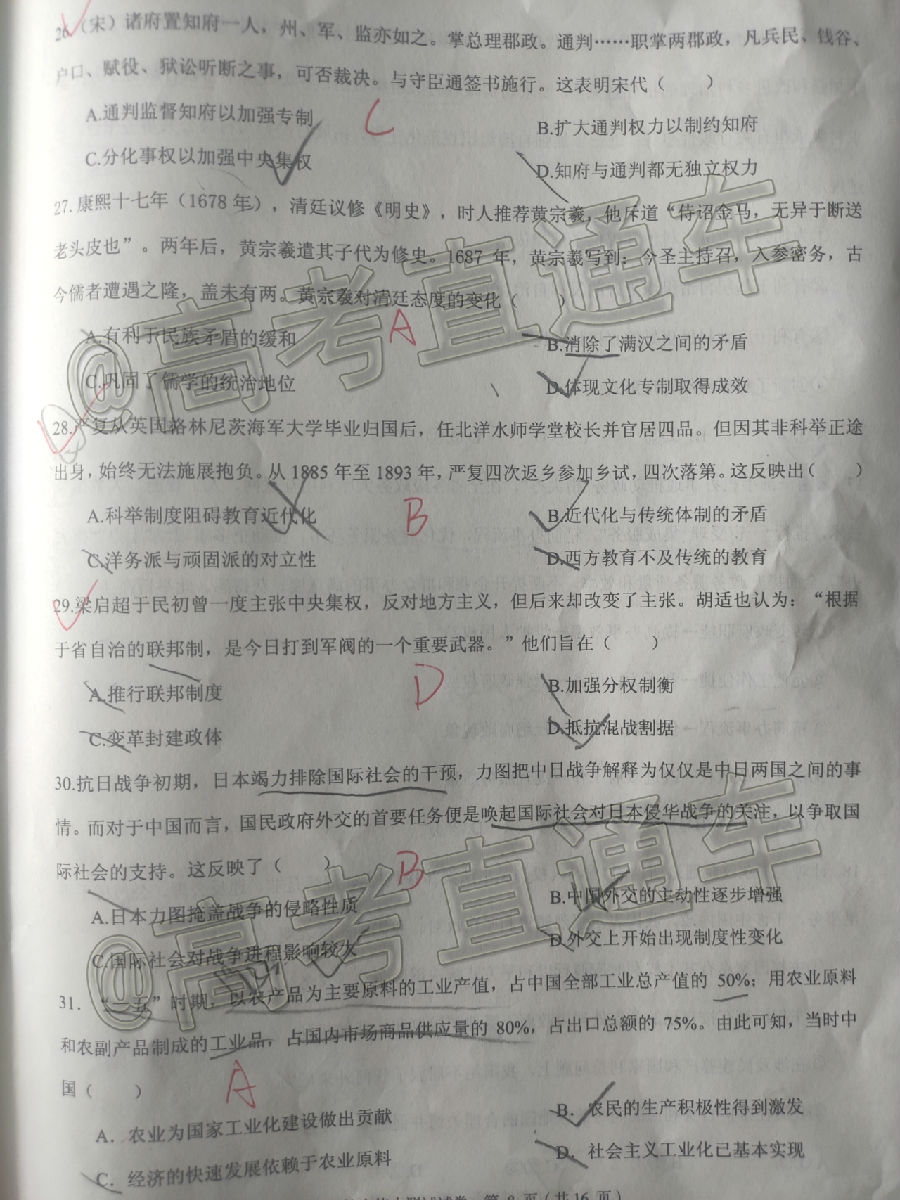 26.（宋）诸府置知府一人，州、军、监亦如之。掌总理郡政。通判……职掌两郡政，凡兵民、钱谷、
户口、赋役、狱讼听断之事，可否裁决。与守臣通签书施行。这表明宋代（　　）
A.通判监督知府以加强专制
C
B.扩大通判权力以制约知府
C.分化事权以加强中央集权
D.知府与通判都无独立权力
27.康熙十七年（1678 年），清廷议修《明史》，时人推荐黄宗羲，他斥道“待诏金马，无异于断送
老头皮也”。两年后，黄宗羲遣其子代为修史。1687 年，黄宗羲写到：今圣主特召，入参密务，古
今儒者遭遇之隆，盖未有两。黄宗羲对清廷态度的变化（　　）
A.有利于民族矛盾的缓和
A
B.消除了满汉之间的矛盾
C.巩固了儒学的统治地位
D.体现文化专制取得成效
28.严复从英国格林尼茨海军大学毕业归国后，任北洋水师学堂校长并官居四品。但因其非科举正途
出身，始终无法施展抱负。从 1885 年至 1893 年，严复四次返乡参加乡试，四次落第。这反映出（　　）
A.科举制度阻碍教育近代化
B
B.近代化与传统体制的矛盾
C.洋务派与顽固派的对立性
D.西方教育不及传统的教育
29.梁启超于民初曾一度主张中央集权，反对地方主义，但后来却改变了主张。胡适也认为：“根据
于省自治的联邦制，是今日打到军阀的一个重要武器。”他们旨在（　　）
A.推行联邦制度
D
B.加强分权制衡
C.变革封建政体
D.抵抗混战割据
30.抗日战争初期，日本竭力排除国际社会的干预，力图把中日战争解释为仅仅是中日两国之间的事
情。而对于中国而言，国民政府外交的首要任务便是唤起国际社会对日本侵华战争的关注，以争取国
际社会的支持。这反映了（　　）
B
A.日本力图掩盖战争的侵略性质
B.中国外交的主动性逐步增强
C.国际社会对战争进程影响较大
D.外交上开始出现制度性变化
31．“一五”时期，以农产品为主要原料的工业产值，占中国全部工业总产值的 50%；用农业原料
和农副产品制成的工业品，占国内市场商品供应量的 80%，占出口总额的 75%。由此可知，当时中
国（　　）
A
A．农业为国家工业化建设做出贡献
B．农民的生产积极性得到激发
C．经济的快速发展依赖于农业原料
D．社会主义工业化已基本实现
@高考直通车
@高考直通车